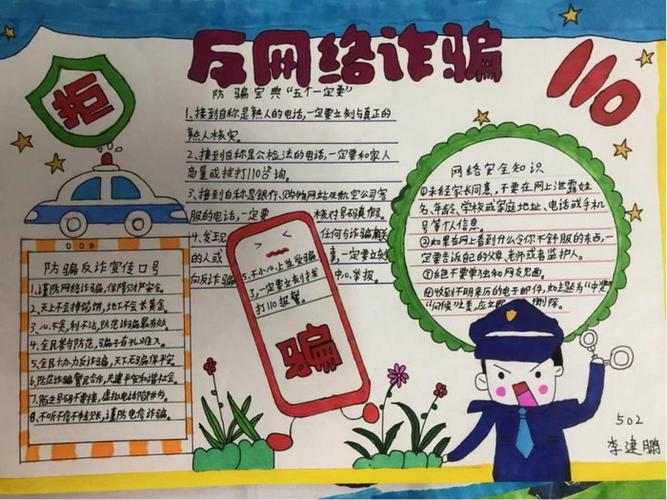 反网络诈骗
110
防骗宝典“五个一定要”
1、接到自称是熟人的电话,一定要立刻与真正的
熟人核实。
2、接到自称是公检法的电话,一定要和家人
商量或拨打110咨询。
3、接到自称是银行、购物网站及航空公司客
服的电话,一定要 核对号码真假。
4、发现 任何与诈骗
的人或 事,一定要立刻
向反诈骗 中心举报。
5、不小心上当受骗
了,一定要立刻拨
打110报警。
骗
防骗反诈宣传口号
1、谨防网络诈骗,保障财产安全。
2、天上不会掉馅饼,地下不会长黄金。
4、全民参与防范,骗子有孔难入。
5、全民十办力反诈骗,天下无骗保平安。
6、防范诈骗警民合作,共建平安和谐社会。
8、不听不信不转账,谨防电信诈骗。
网络安全知识
①未经家长同意,不要在网上泄露姓
名、年龄、学校或家庭地址、电话或手机
号等个人信息。
②如果在网上看到什么令你不舒服的东西,一
定要告诉自己的父母、老师或者监护人。
③绝不要单独和网友见面。
④收到不明来历的电子邮件,如主题为“中奖”
“问候”之类,应立即 删除。
502
李建鹏